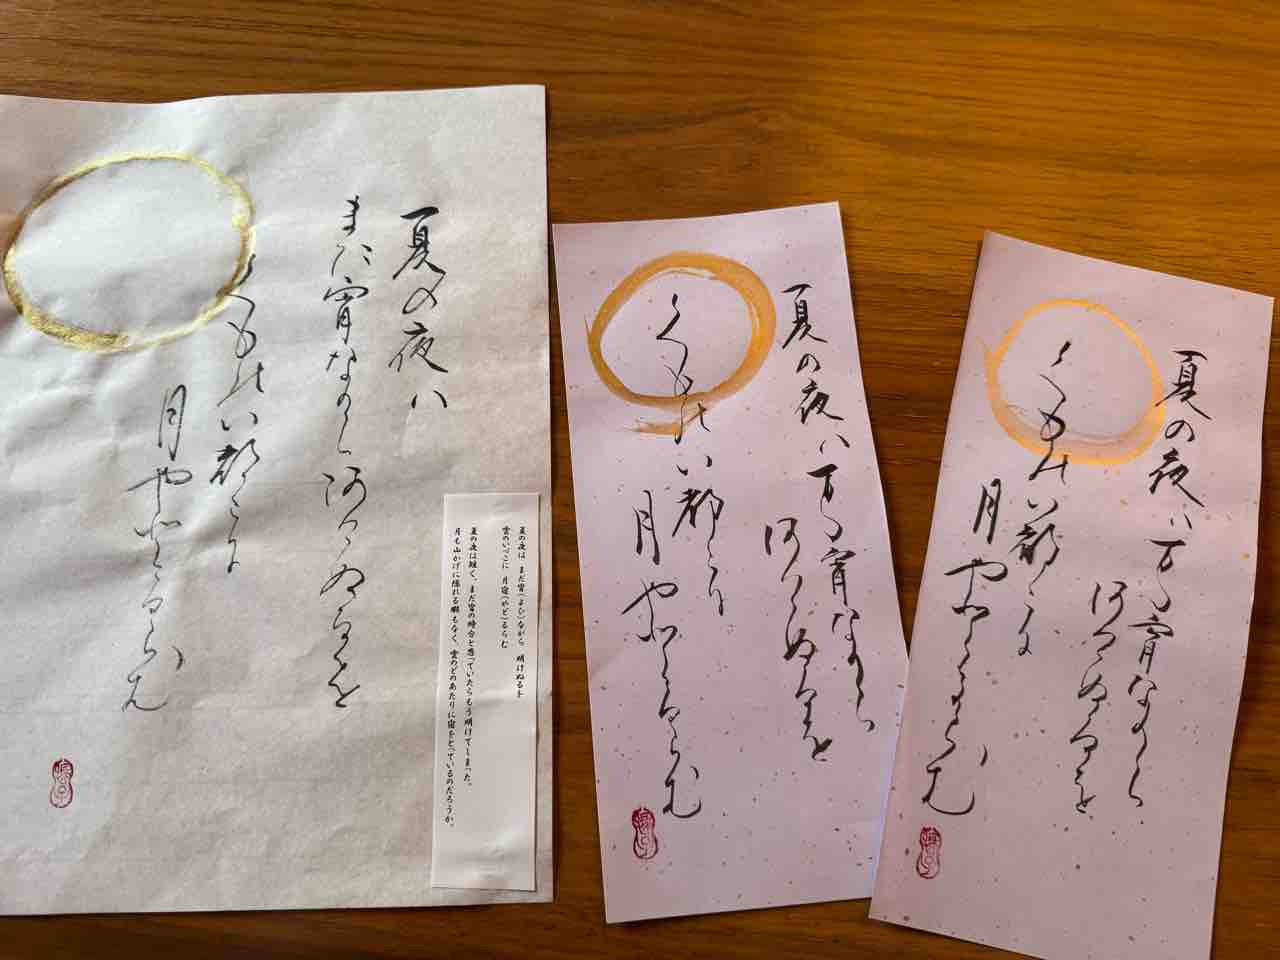 夏の夜ハ
また宵なから阿けぬるを
くものい都こに
月やとるらむ
夏の夜は まだ宵(よひ)ながら 明けぬるを
雲のいづこに 月宿(やど)るらむ
夏の夜は短く、まだ宵の時分と思っていたらもう明けてしまった。
月も山かげに隠れる暇もなく、雲のどのあたりに宿をとっているのだろうか。
夏の夜ハ万多宵なから
阿けぬるを
くものい都こに
月やとるらむ
夏の夜ハ万多宵なから
阿けぬるを
くものい都こに
月やとるらむ